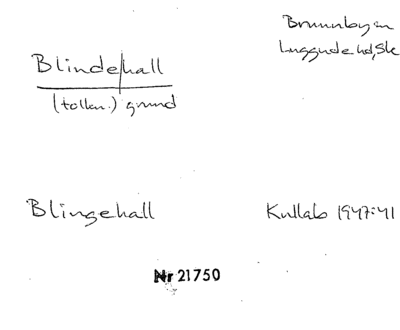 Brunnby sn
Luggude hd, Sk
Blinde/hall
(tolkn.) grund
Blingehall
Kullab 1947:41
Nr 21750